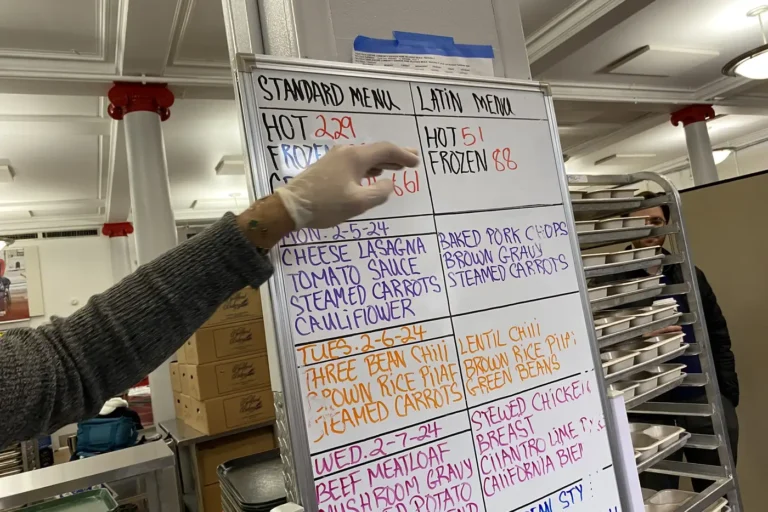 STANDARD MENU
LATIN MENU
HOT 229
HOT 51
FROZEN 88
661
MON. 2-5-24
CHEESE LASAGNA
TOMATO SAUCE
STEAMED CARROTS
CAULIFLOWER
BAKED PORK CHOPS
BROWN GRAVY
STEAMED CARROTS
TUES. 2-6-24
THREE BEAN CHILI
BROWN RICE PILAF
STEAMED CARROTS
LENTIL CHILI
BROWN RICE PILAF
GREEN BEANS
WED. 2-7-24
BEEF MEATLOAF
MUSHROOM GRAVY
POTATO
STEWED CHICKEN
BREAST
CILANTRO LIME
CALIFORNIA
STY